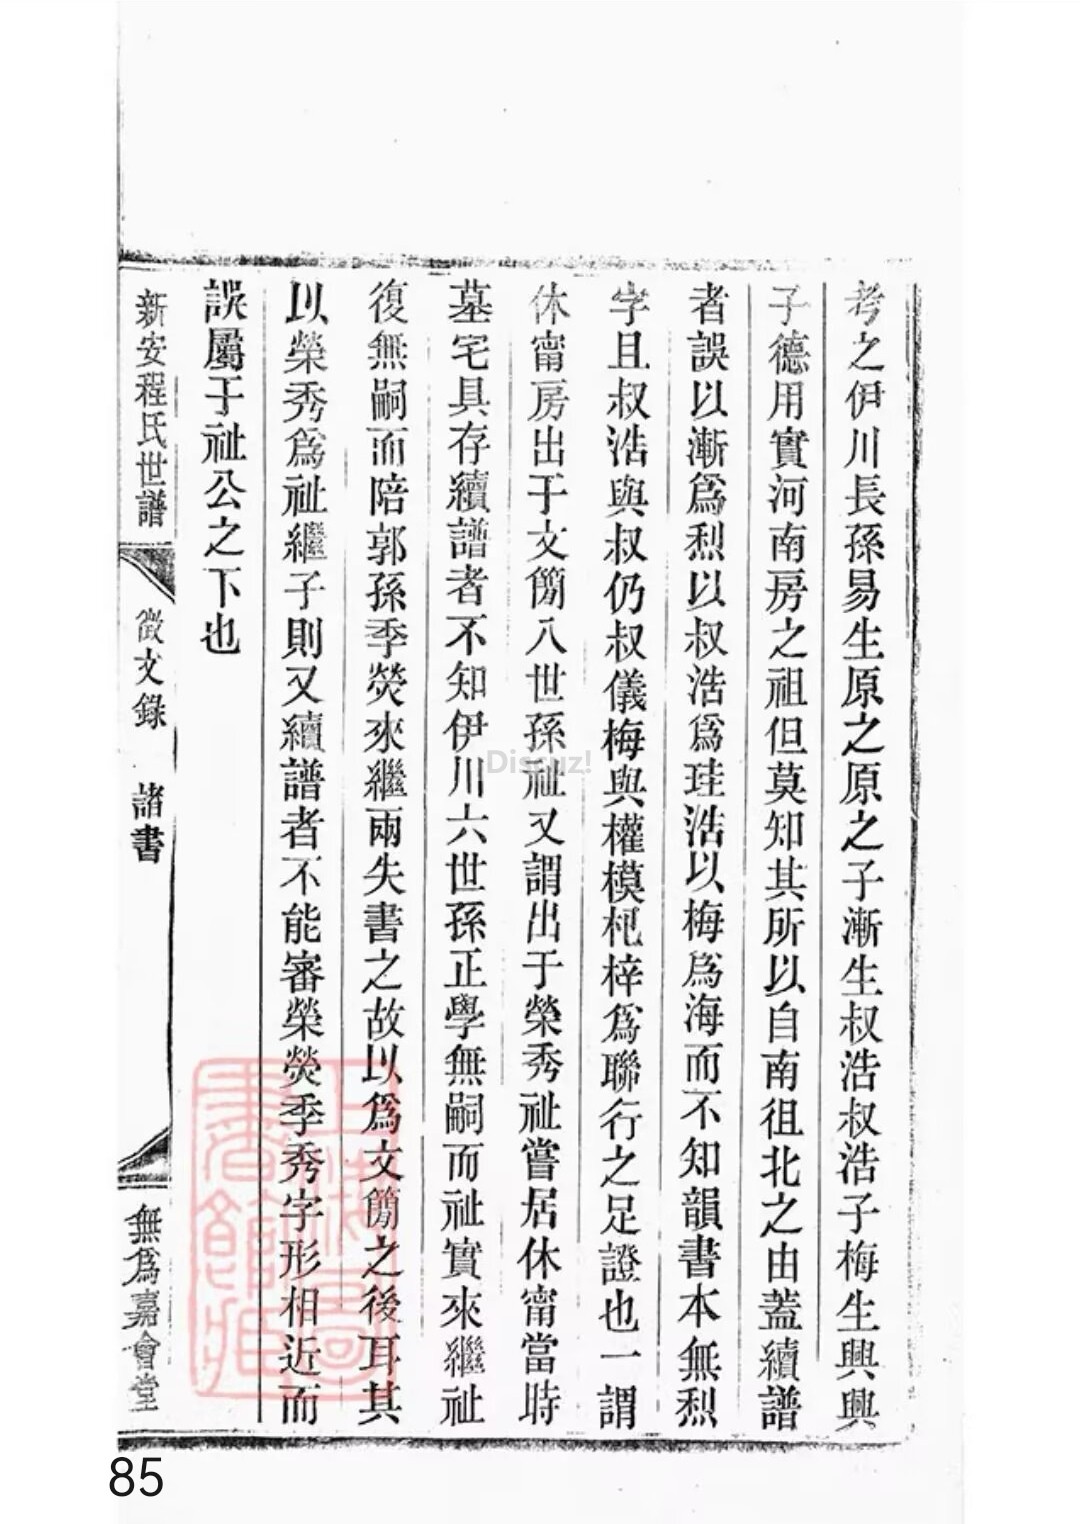 考之伊川長孫易生原之原之子漸生叔浩叔浩子梅生興興
子德用實河南房之祖但莫知其所以自南徂北之由蓋續譜
者誤以漸爲烮以叔浩爲珪浩以梅爲海而不知韻書本無烮
字且叔浩與叔仍叔儀梅與權模杞梓爲聯行之足證也一謂
休甯房出于文簡八世孫祉又謂出于榮秀祉嘗居休甯當時
墓宅具存續譜者不知伊川六世孫正學無嗣而祉實來繼祉
復無嗣而陪郭孫季熒來繼兩失書之故以爲文簡之後耳其
以榮秀爲祉繼子則又續譜者不能審榮熒季秀字形相近而
誤屬于祉公之下也
新安程氏世譜 徵文錄 諸書 無爲嘉會堂
上海圖書館藏
Discuz!
85